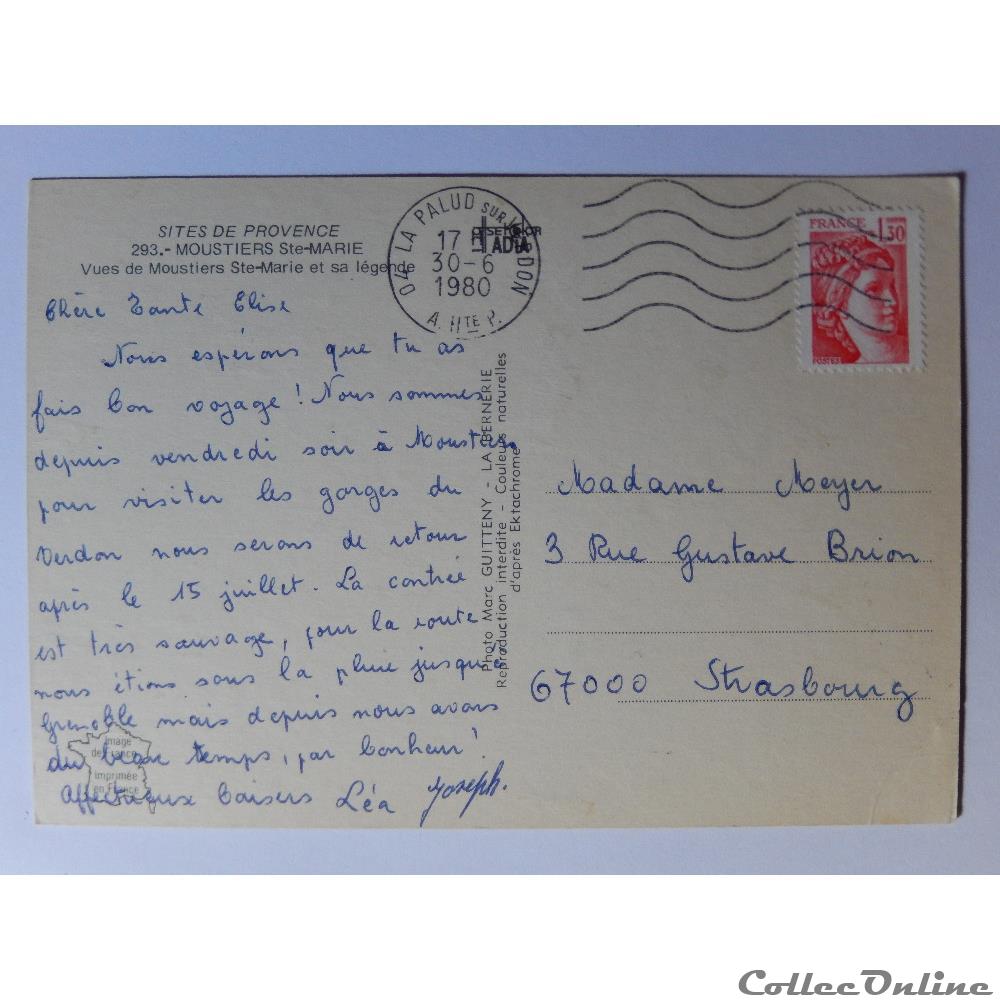 SITES DE PROVENCE
293.- MOUSTIERS Ste-MARIE
Vues de Moustiers Ste-Marie et sa légende
Chère Tante Elise
Nous espérons que tu as
fais bon voyage ! Nous sommes
depuis vendredi soir à Moustiers
pour visiter les gorges du
Verdon nous serons de retour
après le 15 juillet. La contrée
est très sauvage, pour la route
nous étions sous la pluie jusqu'à
Grenoble mais depuis nous avons
du beau temps, par bonheur !
Affectueux baisers Léa Joseph.
Image
de France
imprimée
en France
Photo Marc GUITTENY - LA BERNERIE
Reproduction interdite - Couleurs naturelles
d'après Ektachrome
04 LA PALUD SUR VERDON
17 H
30-6
1980
A. HTE P.
FRANCE 1,30
POSTES
Madame Meyer
3 Rue Gustave Brion
67000 Strasbourg
CollecOnline